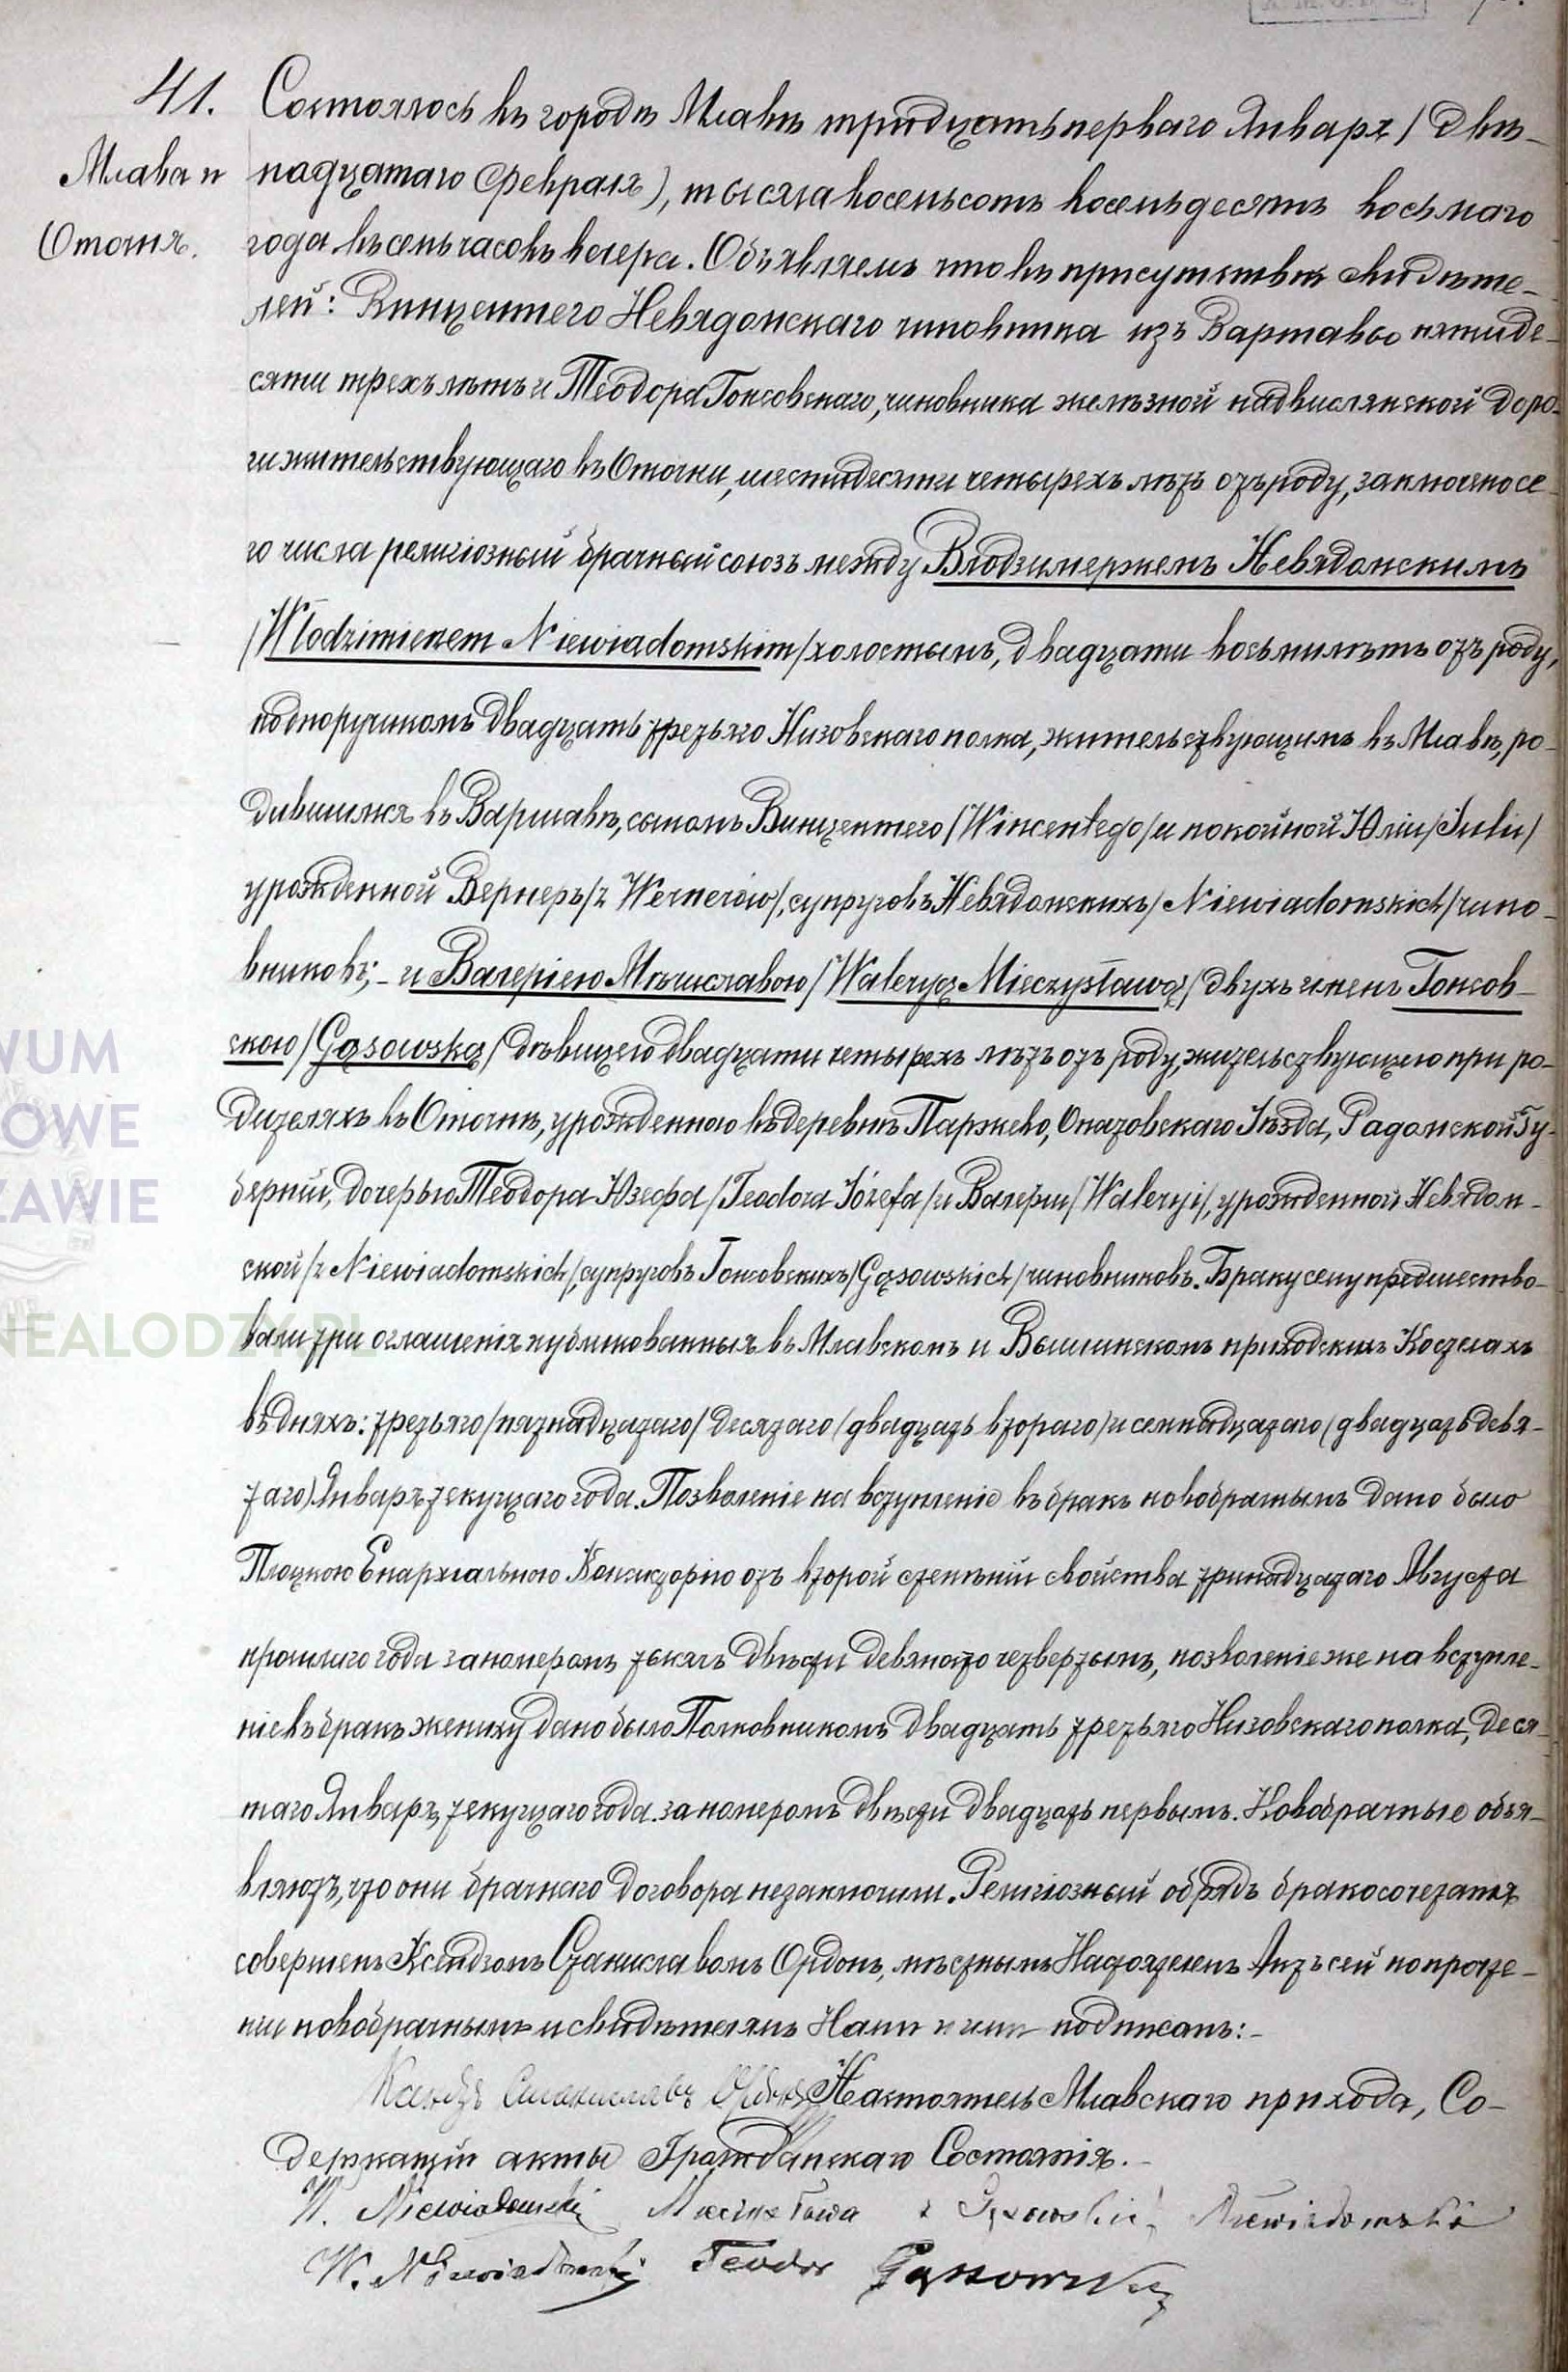 41.
Млава и
Отоčня.
Состоялось въ городѣ Млавѣ тридцать перваго Января / двѣ-
надцатаго Февраля), тысяча восемьсотъ восемьдесятъ восьмаго
года въ семь часовъ вечера. Объявляемъ что въ присутствіи свидѣте-
лей: Винцентего Невядомскаго чиновника изъ Варшавы пятиде-
сяти трехъ лѣтъ и Теодора Гонсовскаго, чиновника желѣзной надвислянской доро-
ги жительствующаго въ Оточни, шестидесяти четырехъ лѣтъ отъ роду, заключено се-
го числа религіозный брачный союзъ между Влодзимержемъ Невядомскимъ
/Włodzimierzem Niewiadomskim/ холостымъ, двадцати восьми лѣтъ отъ роду,
подпоручикомъ двадцать третьяго Низовскаго полка, жительствующимъ въ Млавѣ, ро-
дившимся въ Варшавѣ, сыномъ Винцентего /Wincentego/ и покойной Юліи /Julii/
урожденной Вернеръ /z Wernerów/, супруговъ Невядомскихъ /Niewiadomskich/ чино-
вниковъ; - и Валеріею Мѣчиславою /Waleryą Mieczysławą/ двухъ именъ Гонсов-
скою /Gąsowską/ дѣвицею двадцати четырехъ лѣтъ отъ роду, жительствующею при ро-
дителяхъ въ Оточнѣ, урожденною въ деревнѣ Паржево, Опатовскаго Уѣзда, Радомской Гу-
берніи, дочерью Теодора Юзефа /Teodora Józefa/ и Валеріи /Waleryi/, урожденной Невядом-
ской /z Niewiadomskich/, супруговъ Гонсовскихъ /Gąsowskich/ чиновниковъ. Браку сему предшество-
вали три оглашенія публикованныя въ Млавскомъ и Вышинскомъ приходскихъ Костелахъ
въ дняхъ: третьяго /пятнадцатаго/ десятаго (двадцать втораго) и семнадцатаго (двадцать девя-
таго) Января текущаго года. Позволеніе на вступленіе въ бракъ новобрачнымъ дано было
Плоцкою Епархіальною Консисторіею отъ второй степени свойства тринадцатаго Августа
прошлаго года за номеромъ тысяча двѣсти девяносто четвертымъ, позволеніе же на вступле-
ніе въ бракъ жениху дано было Полковникомъ двадцать третьяго Низовскаго полка, деся-
таго Января текущаго года за номеромъ двѣсти двадцать первымъ. Новобрачные объя-
вляютъ, что они брачнаго договора незаключили. Религіозный обрядъ бракосочетанія
совершенъ Ксендзомъ Станиславомъ Ордонъ, мѣстнымъ Настоятелемъ Актъ сей по прочте-
ніи новобрачнымъ и свидѣтелямъ Нами и ими подписанъ:-
Ксендзъ Станиславъ Ордонъ Настоятель Млавскаго прихода, Со-
держащій акты Гражданскаго Состоянія.-
W. Niewiadomski Mieczysława z Gąsowskich Niewiadomska
W. Niewiadomski Teodor Gąssowski
WUM
OWE
ZAWIE
NEALODZY.PL